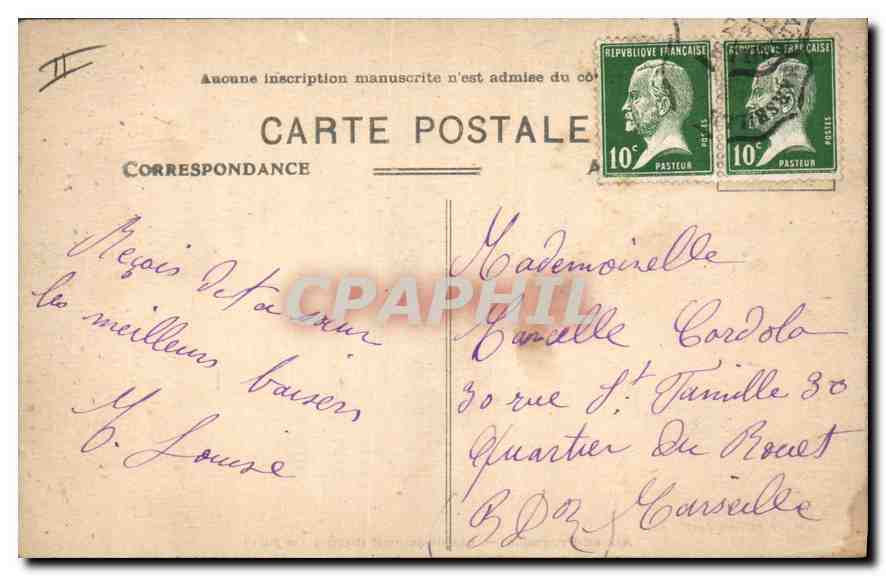 II
Aucune inscription manuscrite n'est admise du cô
CARTE POSTALE
CORRESPONDANCE
A
REPVBLIQUE FRANÇAISE
10c
PASTEUR
POSTES
REPVBLIQUE FRANÇAISE
10c
PASTEUR
POSTES
Reçois de ta sœur
les meilleurs baisers
M. Louise
Mademoiselle
Marcelle Cordola
30 rue St. Famille 30
Quartier du Rouet
(BDR) Marseille
CPAPHIL